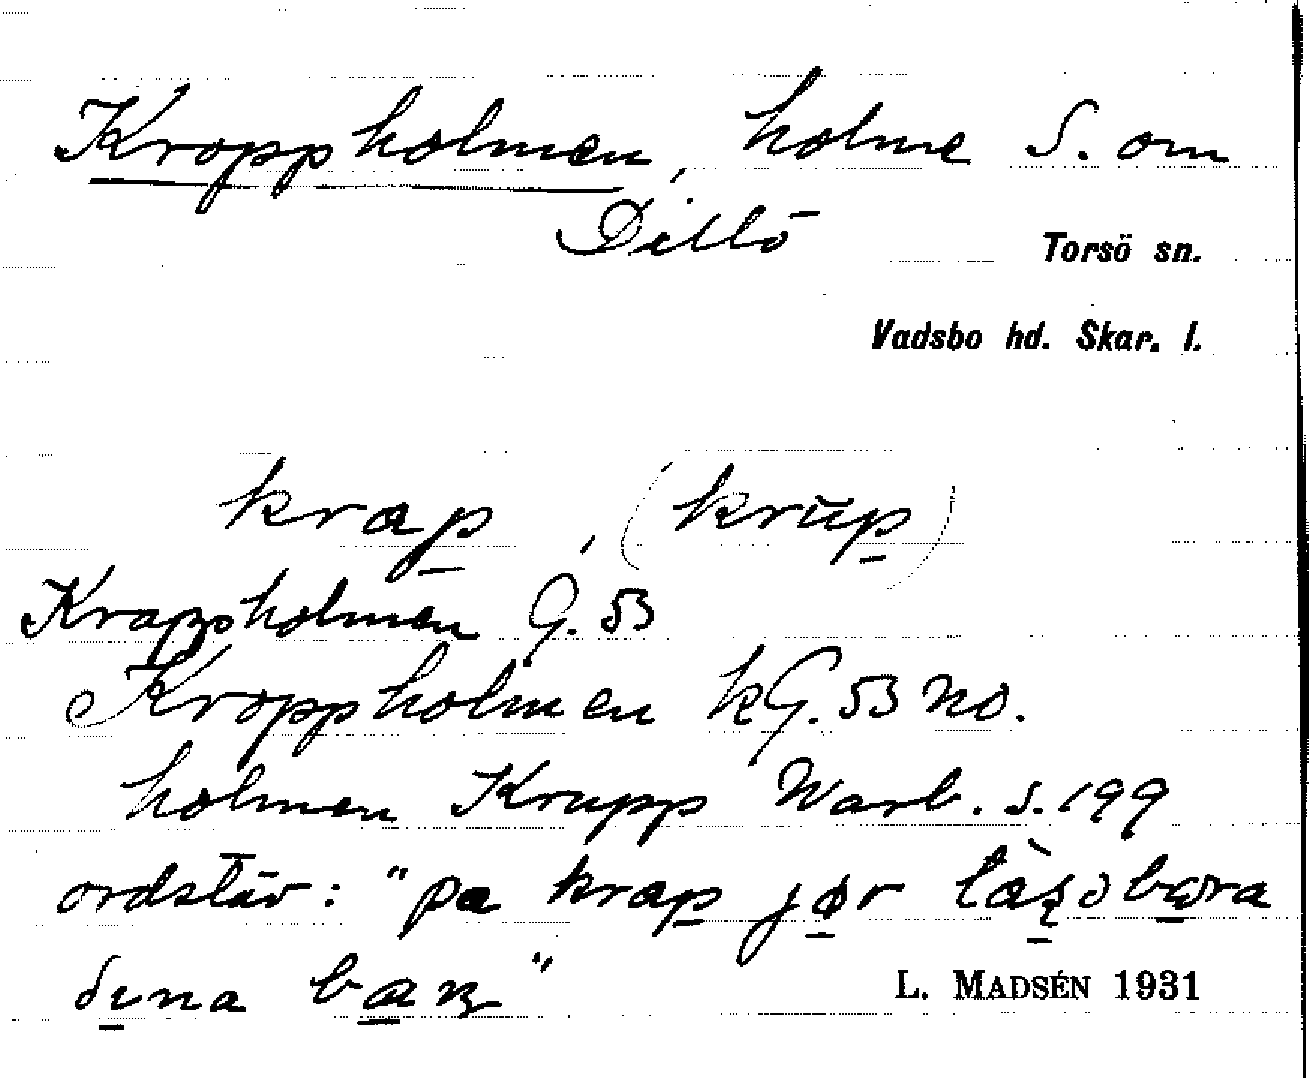 Kroppholmen, holme S. om
Dillö
Torsö sn.
Vadsbo hd. Skar. l.
krap, (krup)
Krappholmen G. 53
Kroppholmen kG. 53 no.
holmen Krupp Warb. s. 199
ordstäv: "pa krap jør
dɩna baʀ"
L. MADSÉN 1931